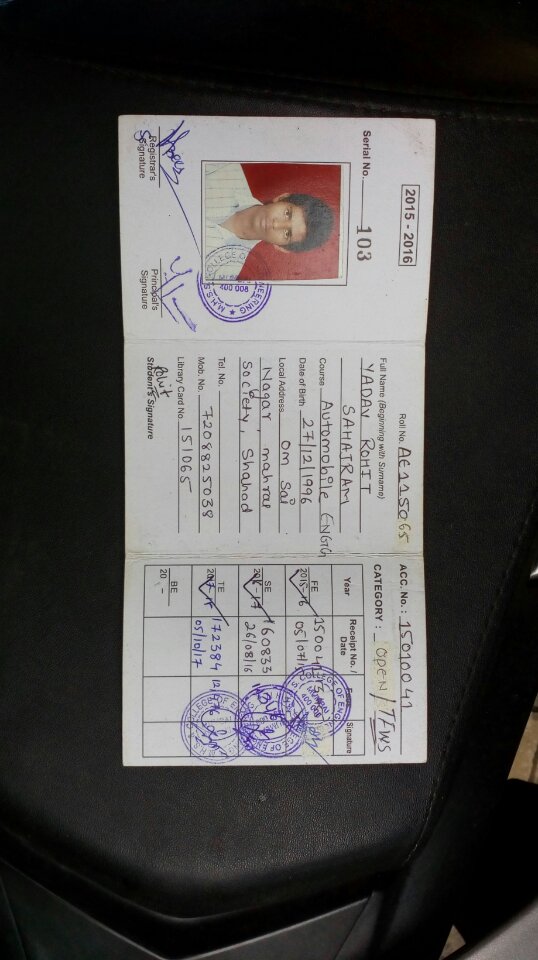 2015 - 2016
Serial No. 103
Registrar's
Signature
Principal's
Signature
Roll No. AE115065
Full Name (Beginning with Surname)
YADAV ROHIT
SAHATRAM
Course Automobile ENGG
Date of Birth 27/12/1996
Local Address Om Sai
Nagar, mahral
Society, Shahad
Tel. No.
Mob. No. 7208825038
Library Card No. 151065
Rohit
Student's Signature
ACC. No. : 15010041
CATEGORY : open / TFWS
Year Receipt No. / Date Signature
FE
2015-16
05/07/
SE 160833
2016-17 26/08/16
TE 172384
2017-18 05/10/17
BE
20 -
COLLEGE OF ENGINEERING
400 008